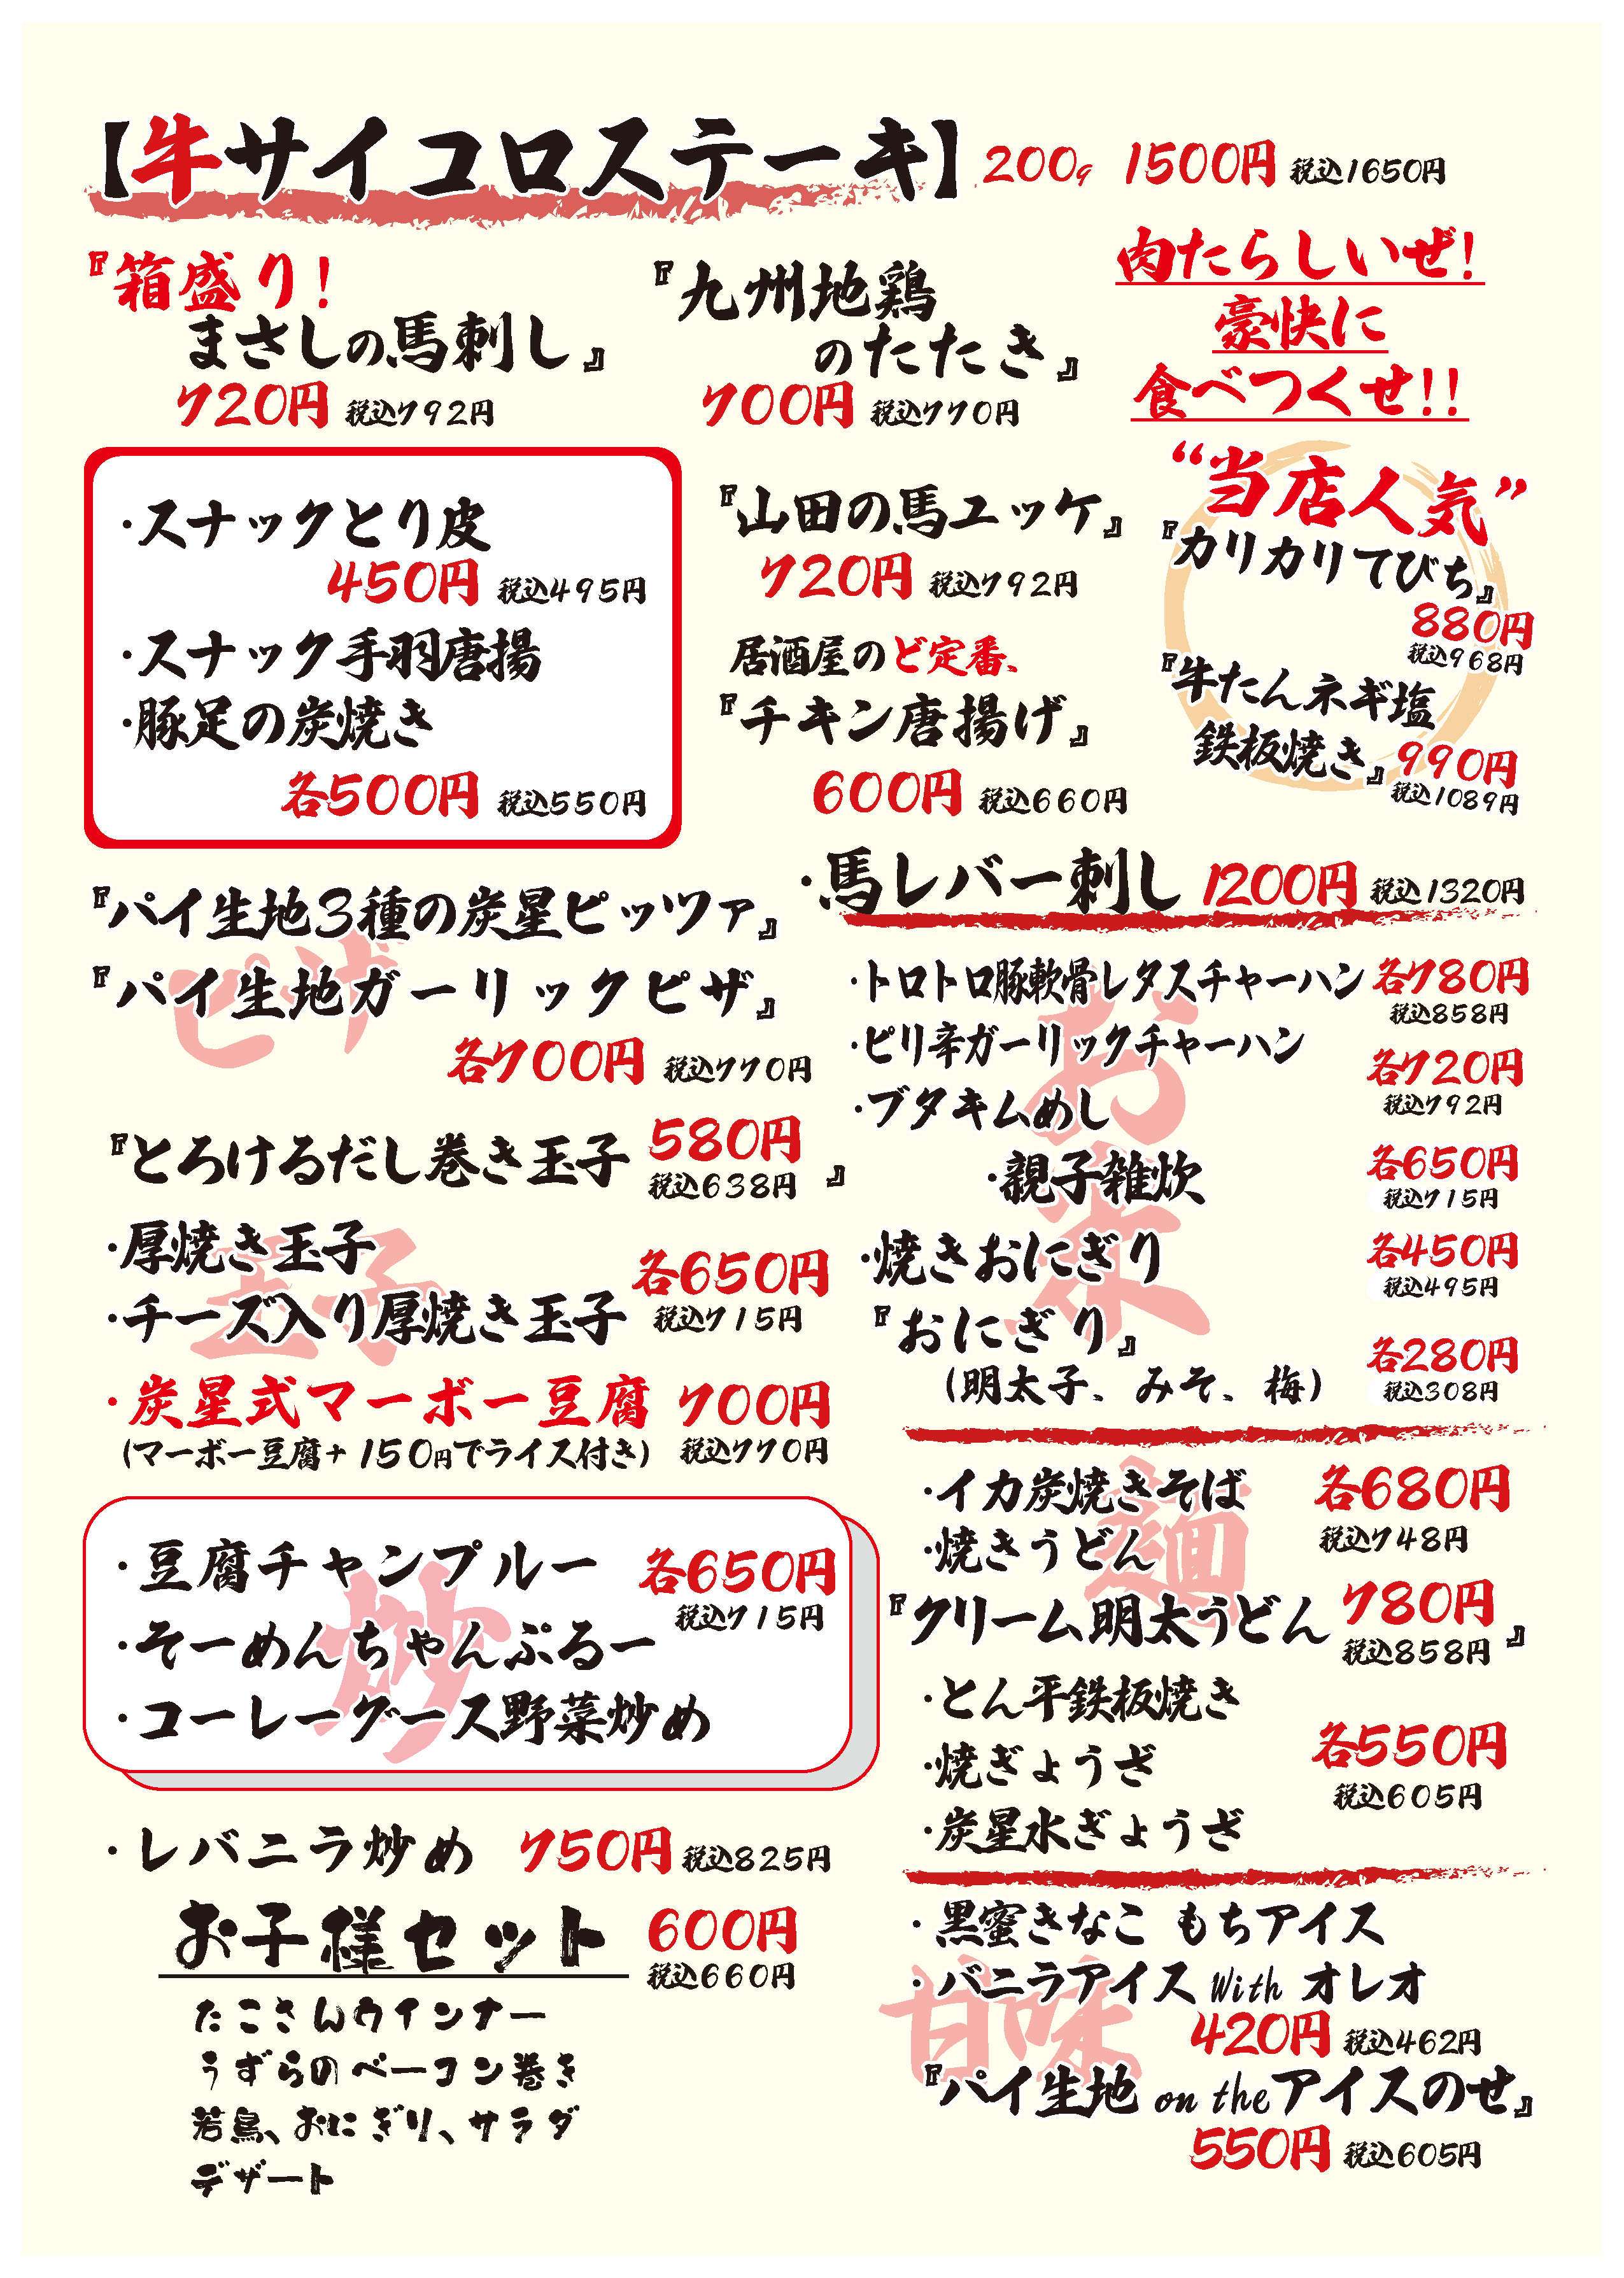 【牛サイコロステーキ】 200g 1500円 税込1650円
『箱盛り!
まさしの馬刺し』
720円 税込792円
『九州地鶏
のたたき』
700円 税込770円
肉たらしいぜ!
豪快に
食べつくせ!!
・スナックとり皮
450円 税込495円
・スナック手羽唐揚
・豚足の炭焼き
各500円 税込550円
『山田の馬ユッケ』
720円 税込792円
居酒屋のど定番、
『チキン唐揚げ』
600円 税込660円
“当店人気”
『カリカリてびち』
880円
税込968円
『牛たんネギ塩
鉄板焼き』990円
税込1089円
・馬レバー刺し 1200円 税込1320円
『パイ生地3種の炭星ピッツァ』
『パイ生地ガーリックピザ』
ピザ
各700円 税込770円
『とろけるだし巻き玉子 580円 』
税込638円
・厚焼き玉子
・チーズ入り厚焼き玉子
玉子
各650円
税込715円
・炭星式マーボー豆腐 700円
(マーボー豆腐+150円でライス付き) 税込770円
・豆腐チャンプルー 各650円
税込715円
・そーめんちゃんぷるー
・コーレーグース野菜炒め
炒
・レバニラ炒め 750円 税込825円
お子様セット 600円
税込660円
たこさんウインナー
うずらのベーコン巻き
若鳥、おにぎり、サラダ
デザート
お米
・トロトロ豚軟骨レタスチャーハン 各780円
税込858円
・ピリ辛ガーリックチャーハン 各720円
税込792円
・ブタキムめし
・親子雑炊 各650円
税込715円
・焼きおにぎり 各450円
税込495円
『おにぎり』
(明太子、みそ、梅) 各280円
税込308円
麺
・イカ炭焼きそば 各680円
・焼きうどん 税込748円
『クリーム明太うどん 780円 』
税込858円
・とん平鉄板焼き
・焼ぎょうざ 各550円
税込605円
・炭星水ぎょうざ
甘味
・黒蜜きなこ もちアイス
・バニラアイス With オレオ
420円 税込462円
『パイ生地 on the アイスのせ』
550円 税込605円